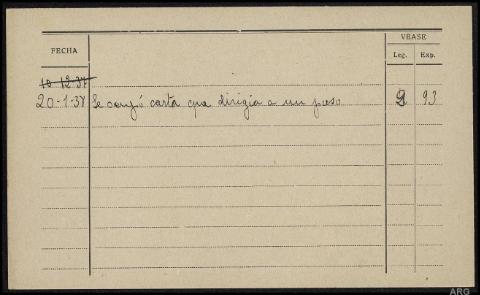 VEASE
FECHA
Leg. Exp.
10-12-37
20-1-37 Se cayó carta que dirigia a un preso 2 93
ARG